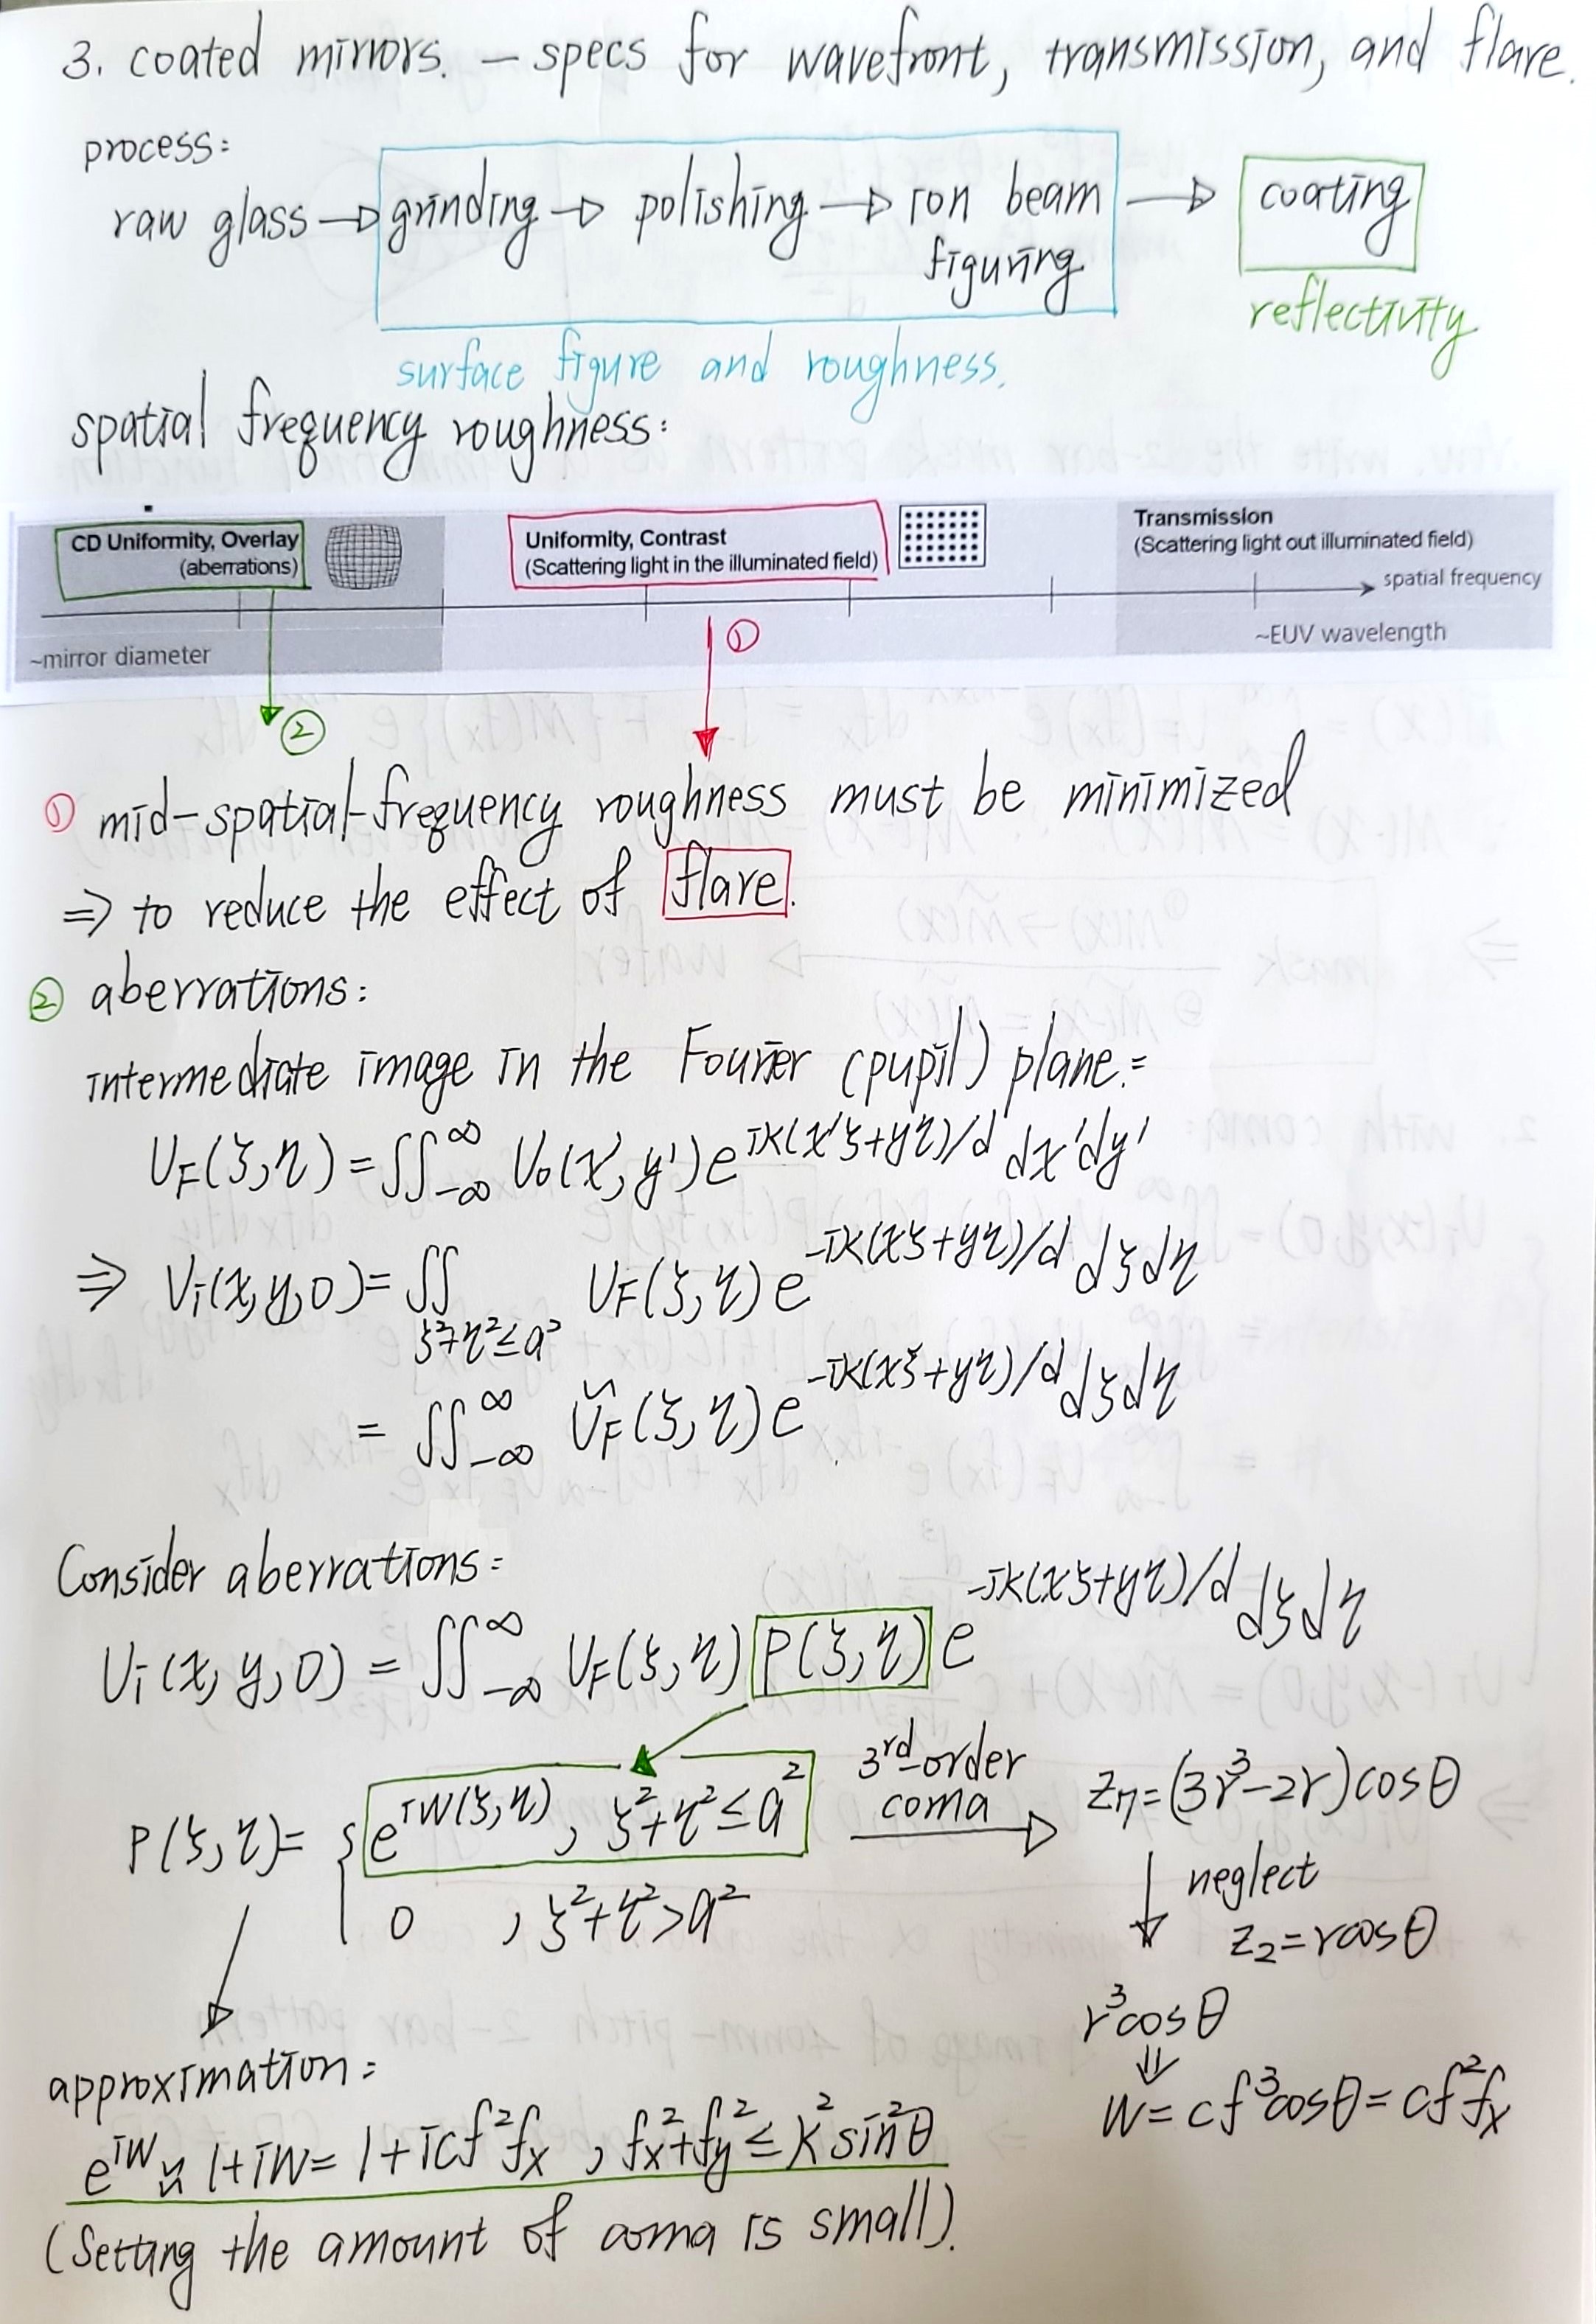 3. coated mirrors. — specs for wavefront, transmission, and flare.
process:
raw glass → grinding → polishing → ion beam figuring → coating
reflectivity
surface figure and roughness.
spatial frequency roughness:
CD Uniformity, Overlay
(aberrations)
Uniformity, Contrast
(Scattering light in the illuminated field)
Transmission
(Scattering light out illuminated field)
spatial frequency
~mirror diameter
~EUV wavelength
①
②
① mid-spatial-frequency roughness must be minimized
⇒ to reduce the effect of flare.
② aberrations:
intermediate image in the Fourier (pupil) plane:
U_F(ξ,η) = ∬_{-∞}^{∞} U₀(x', y') e^{ik(x'ξ+y'η)/d} dx'dy'
⇒ U_i(x,y,0) = ∬_{ξ²+η²≤a²} U_F(ξ,η) e^{-ik(xξ+yη)/d} dξdη
= ∬_{-∞}^{∞} Ũ_F(ξ,η) e^{-ik(xξ+yη)/d} dξdη
Consider aberrations:
U_i(x,y,0) = ∬_{-∞}^{∞} U_F(ξ,η) P(ξ,η) e^{-ik(xξ+yη)/d} dξdη
P(ξ,η) = { e^{iW(ξ,η)}, ξ²+η² ≤ a²
0 , ξ²+η² > a²
3rd-order
coma
Z₇ = (3r³-2r)cosθ
neglect
Z₂ = rcosθ
r³cosθ
⇓
W = cf³cosθ = cf²f_x
approximation:
e^{iW} ≈ 1+iW = 1+icf²f_x , f_x²+f_y² ≤ k²sin²θ
(Setting the amount of coma is small).